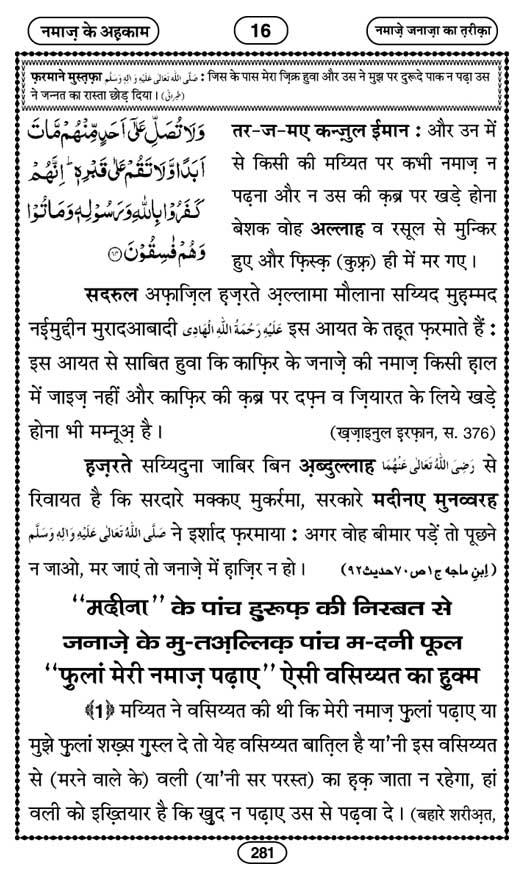 नमाज़ के अह़काम
16
नमाज़े जनाज़ा का त़रीक़ा
फ़रमाने मुस्त़फ़ा صَلَّى اللّٰهُ تَعَالٰى عَلَيْهِ وَاٰلِهٖ وَسَلَّم : जिस के पास मेरा ज़िक्र हुवा और उस ने मुझ पर दुरूदे पाक न पढ़ा उस
ने जन्नत का रास्ता छोड़ दिया । (طبرانی)
وَلَا تُصَلِّ عَلٰۤى اَحَدٍ مِّنْهُمْ مَّاتَ
اَبَدًا وَّلَا تَقُمْ عَلٰى قَبْرِهٖ ؕ اِنَّهُمْ
كَفَرُوْا بِاللّٰهِ وَرَسُوْلِهٖ وَمَاتُوْا
وَهُمْ فٰسِقُوْنَ ﴿۸۴﴾
तर-ज-मए कन्ज़ुल ईमान : और उन में
से किसी की मय्यित पर कभी नमाज़ न
पढ़ना और न उस की क़ब्र पर खड़े होना
बेशक वोह अल्लाह व रसूल से मुन्किर
हुए और फ़िस्क़ (कुफ़्र) ही में मर गए ।
सदरुल अफ़ाज़िल ह़ज़रते अ़ल्लामा मौलाना सय्यिद मुह़म्मद
नई़मुद्दीन मुरादआबादी عَلَيْهِ رَحْمَةُ اللّٰهِ الْهَادِى इस आयत के तह़्त फ़रमाते हैं :
इस आयत से साबित हुवा कि काफ़िर के जनाज़े की नमाज़ किसी ह़ाल
में जाइज़ नहीं और काफ़िर की क़ब्र पर दफ़्न व ज़ियारत के लिये खड़े
होना भी मम्नूअ़ है । (ख़ज़ाइनुल इरफ़ान, स. 376)
ह़ज़रते सय्यिदुना जाबिर बिन अ़ब्दुल्लाह رَضِىَ اللّٰهُ تَعَالٰى عَنْهُمَا से
रिवायत है कि सरदारे मक्कए मुकर्रमा, सरकारे मदीनए मुनव्वरह
صَلَّى اللّٰهُ تَعَالٰى عَلَيْهِ وَاٰلِهٖ وَسَلَّم ने इर्शाद फ़रमाया : अगर वोह बीमार पड़ें तो पूछने
न जाओ, मर जाएं तो जनाज़े में ह़ाज़िर न हो । (اِبنِ ماجه ج۱ص۷۰حديث۹۲)
“मदीना” के पांच हुरूफ़ की निस्बत से
जनाज़े के मु-तअ़ल्लिक़ पांच म-दनी फूल
“फुलां मेरी नमाज़ पढ़ाए” ऐसी वसिय्यत का हुक्म
﴾1﴿ मय्यित ने वसिय्यत की थी कि मेरी नमाज़ फुलां पढ़ाए या
मुझे फुलां शख़्स ग़ुस्ल दे तो येह वसिय्यत बात़िल है या’नी इस वसिय्यत
से (मरने वाले के) वली (या’नी सर परस्त) का ह़क़ जाता न रहेगा, हां
वली को इख़्तियार है कि ख़ुद न पढ़ाए उस से पढ़वा दे । (बहारे शरीअ़त,
281